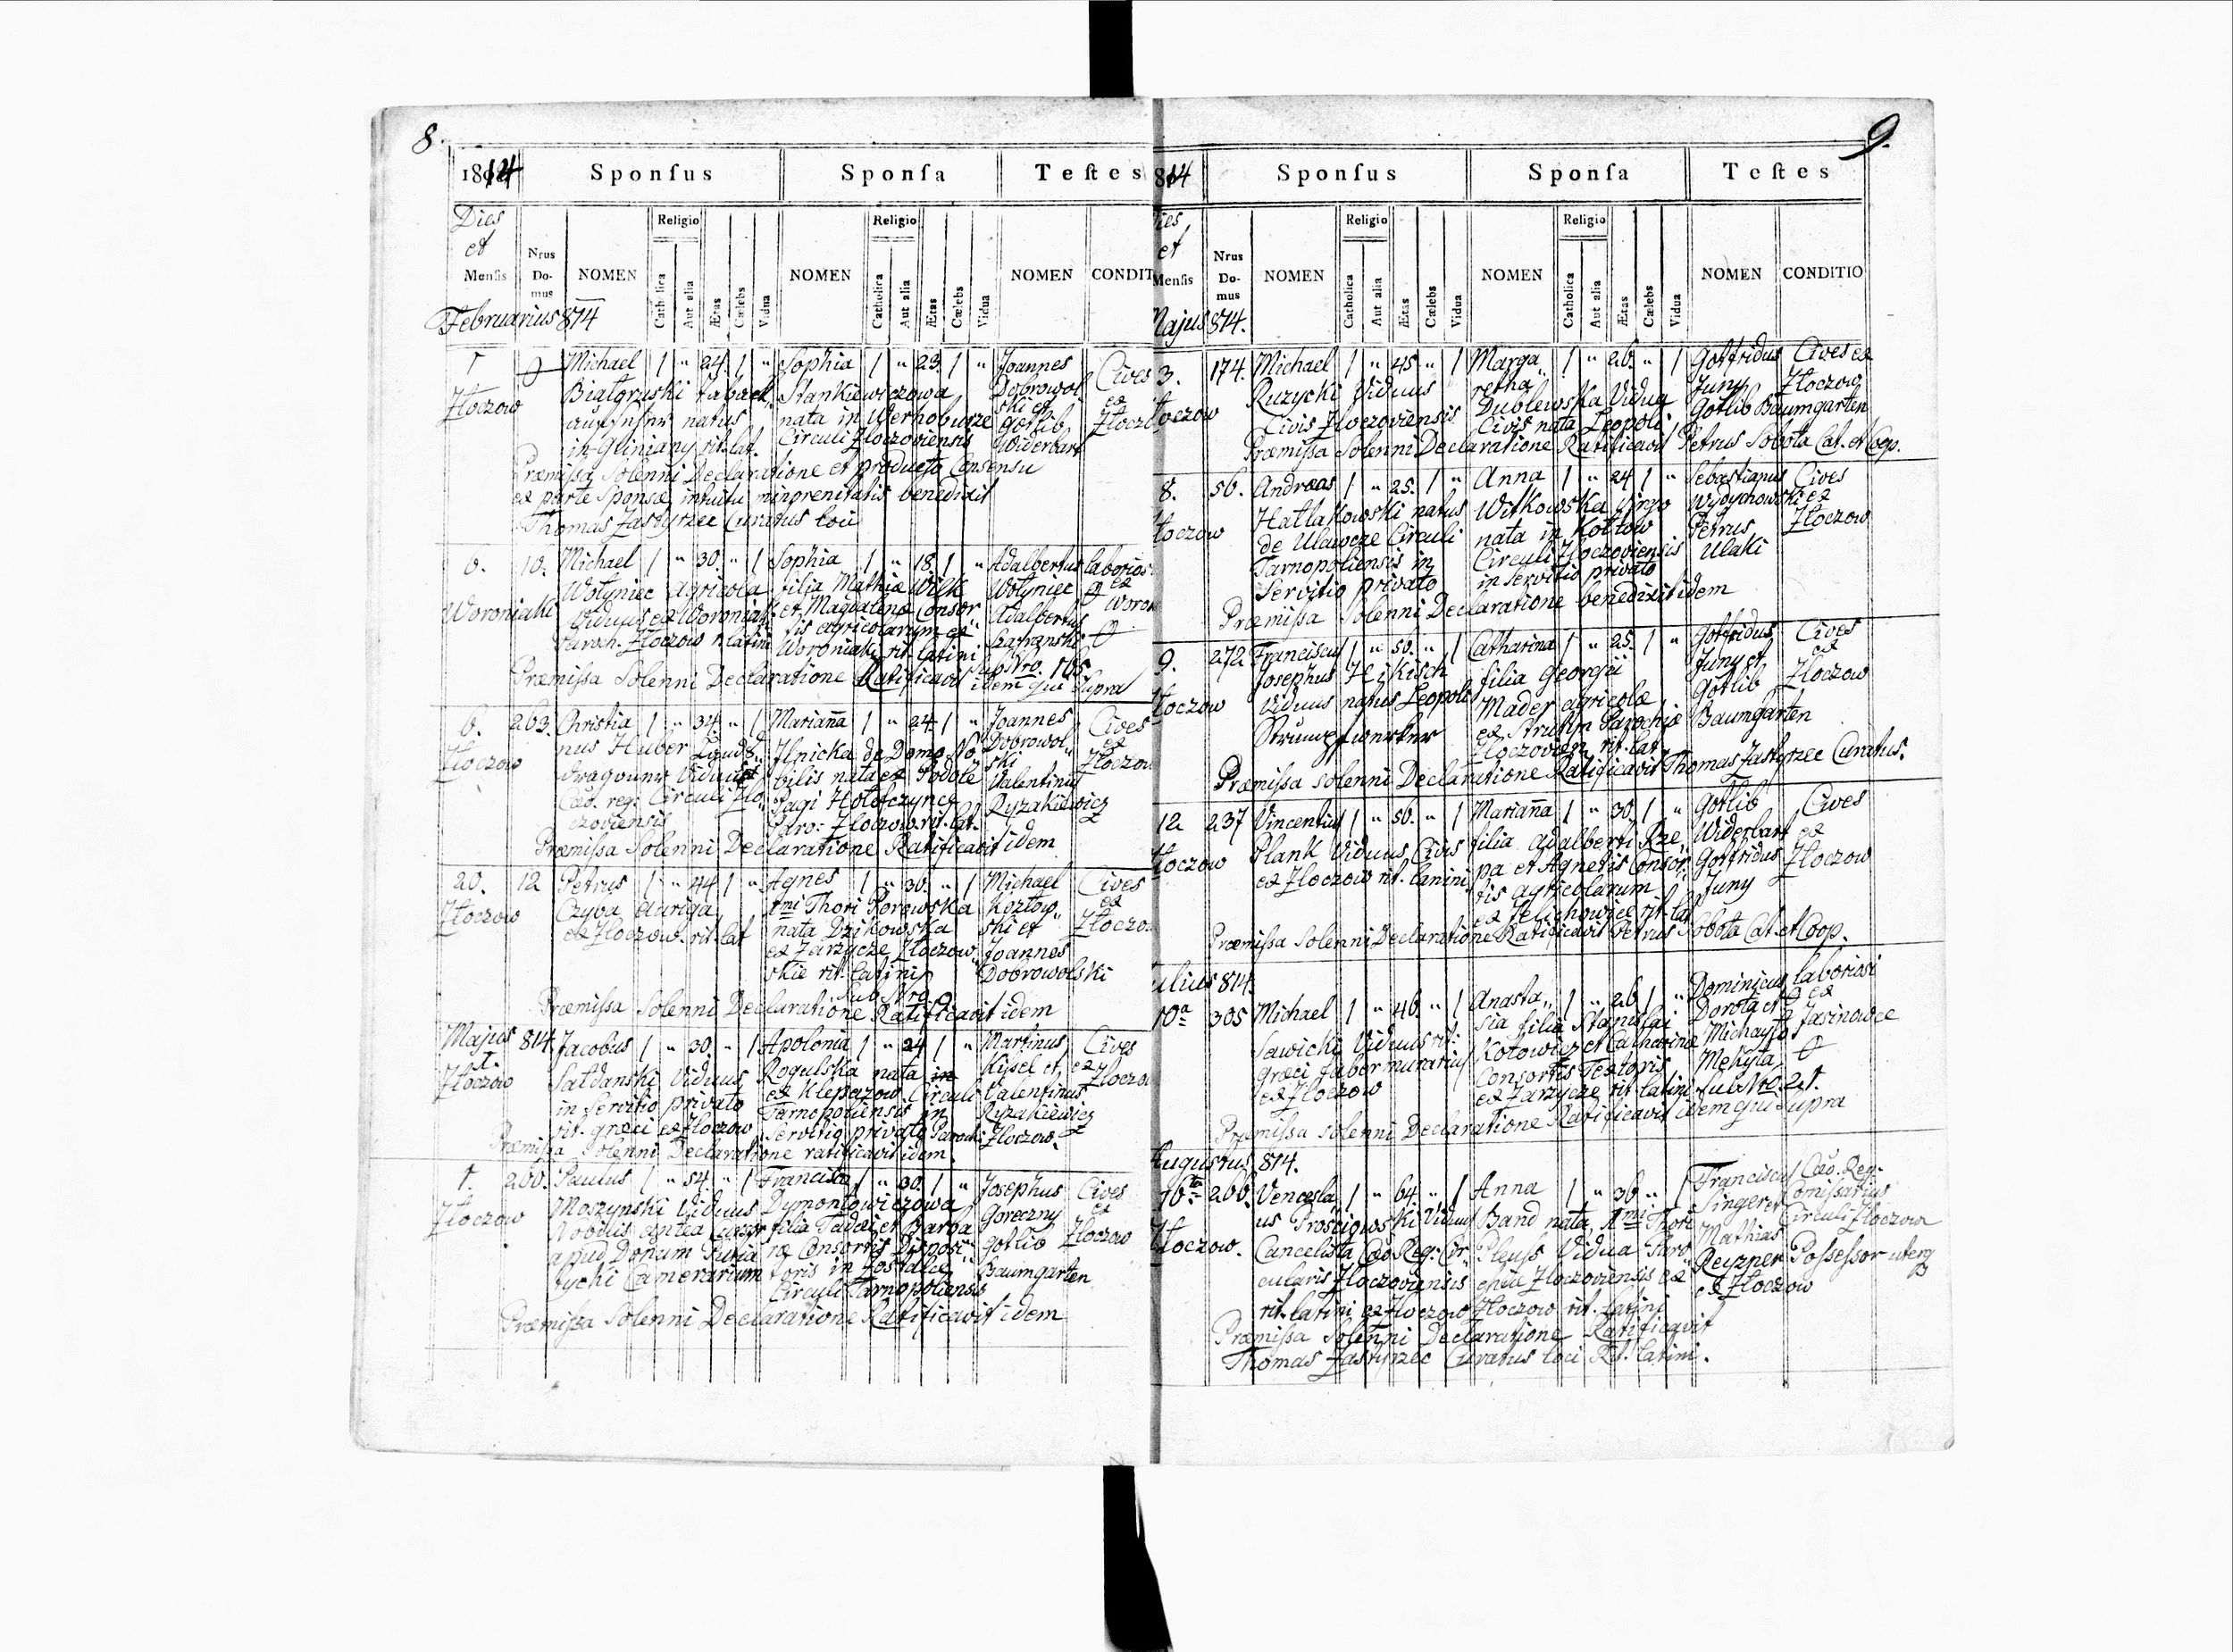 8.
1814 Sponsus Sponsa Testes
Dies et Mensis Nrus Domus NOMEN Religio Catholica Aut alia Ætas Cælebs Vidua NOMEN Religio Catholica Aut alia Ætas Cælebs Vidua NOMEN CONDIT
Februarius 814
1 Michael 1 " 24. 1 " Sophia 1 " 23. 1 " Joannes Cives
Złoczow Stankiewiczowa Dobrowol
natus nata in Werhobuze ski et ex
in Gliniany rit. lat. Circuli Złoczoviensis Gotlib
Widerbart
Præmissa Solenni Declaratione et producto Consensu
ex parte Sponsæ intuitu minorenitatis benedixit
Thomas Zastyrzec Curatus loci
6. 10. Michael 1 " 30. " 1 Sophia 1 " 18 1 " Adalbertus laborios
Woroniaki Wołyniec Agricola filia Mathiæ Wilk Wołyniec ex
Viduus ex Woroniak et Magdalenæ Consor Adalbertus Woron
Paroch. Złoczow r. latini tis agricolarum ex
Woroniaki rit. latini
Sub Nro. 165
Præmissa Solenni Declaratione Ratificavit idem qui Supra
6. 263. Christia 1 " 34. " 1 Marianna 1 " 24 1 " Joannes Cives
Złoczow nus Huber Ilnicka de Domo No Dobrowol ex
Viduus bilis nata ex Podole ski Złoczow
Cæs. reg. Circuli Zło Pagi Valentinus
czoviensis Paro: Złoczow. rit. lat. Ryzakiewicz
Præmissa Solenni Declaratione Ratificavit idem
20. 12 Petrus 1 " 44 1 " Agnes 1 " 30. " 1 Michael Cives
Złoczow Czyba Auriga 1mi Thori Porowska Kozłow ex
ex Złoczow. rit. lat nata Dzikowska ski et Złoczow
ex Zarzycze Złoczow Joannes
skie rit. latini Dobrowolski
Sub Nro 9.
Præmissa Solenni Declaratione Ratificavit idem
Majus 814.
1. Jacobus 1 " 30. " 1 Apolonia 1 " 24 1 " Martinus Cives
Złoczow Sałdanski Viduus Rogulska nata Kisel et ex
in Servitio privato ex Klepazow Circuli Valentinus
rit. græci ex Złoczow Tarnopoliensis in Ryzakiewicz
Servitio privato Paroch. Złoczow.
Præmissa Solenni Declaratione ratificavit idem.
1. 260. Paulus 1 " 54. " 1 Francisca 1 " 30. 1 " Josephus Cives
Złoczow Moszynski Viduus Dymontowiczowa Goreczny ex
Nobilis antea filia Tadei et Barba Gotlib Złoczow
apud Donum ræ Consortis Disposi Baumgarten
Camerarium toris in
Circuli Tarnopoliensis
Præmissa Solenni Declaratione Ratificavit idem
9.
814 Sponsus Sponsa Testes
Dies et Mensis Nrus Domus NOMEN Religio Catholica Aut alia Ætas Cælebs Vidua NOMEN Religio Catholica Aut alia Ætas Cælebs Vidua NOMEN CONDITIO
Majus 814.
3. 174. Michael 1 " 45 " 1 Marga 1 " 26. " 1 Gotfridus Cives ex
Złoczow Ruzycki Viduus retha Juny Złoczow
Civis Złoczoviensis Dublewska Vidua Gotlib Baumgarten
Civis nata Leopoli
Præmissa Solenni Declaratione Ratificavit Petrus Sobota Cat. et Coop.
8. 56. Andreas 1 " 25. 1 " Anna 1 " 24 1 " Sebastianus Cives
Złoczow Hatlakowski natus Witkowska Virgo Wydychowski ex
de Ulawcze Circuli nata in Kołtow Petrus Złoczow
Tarnopoliensis in Circuli Złoczoviensis Ulaki
Servitio privato in Servitio privato
Præmissa Solenni Declaratione benedixit idem
9. 272 Franciscus 1 " 50. " 1 Catharina 1 " 25. 1 " Gotfridus Cives
Złoczow Josephus Hikisch filia Georgii Juny et ex
Viduus natus Leopoli Mader agricolæ Gotlib Złoczow
Strumpfwerker ex Strutyn Parochiæ Baumgarten
Złoczovien rit. lat
Præmissa Solenni Declaratione Ratificavit Thomas Zastyrzec Curatus.
12 237 Vincentius 1 " 50. " 1 Marianna 1 " 30. 1 " Gotlib Cives
Złoczow Plank Viduus Civis filia Adalberti Rze Widerbart ex
ex Złoczow rit. lanini pa et Agnetis Consor Gotfridus Złoczow
tis Agricolarum Juny
ex Jelichowice rit. lat
Præmissa Solenni Declaratione Ratificavit Petrus Sobota Cat. et Coop.
Julius 814.
10a 305 Michael 1 " 46. " 1 Anasta 1 " 26 1 " Dominicus laboriosi
Sawicki Viduus rit. sia filia Stanislai Dorota et ex
græci faber murarius Kotowicz et Catharinæ Michayło Jasinowce
ex Złoczow Consortis Textoris Mekyta
ex Zarzycze rit. latini Sub Nro. 21.
Præmissa Solenni Declaratione Ratificavit idem qui Supra
Augustus 814.
16ta 266. Vencesla 1 " 64. " 1 Anna 1 " 36 " 1 Franciscus Cæs. Reg.
Złoczow. us Viduus Band nata, 1mi Thori Singer et Comissarius
Cancelista Cæs. Reg: Cir Pleuss Vidua Paro Mathias Circuli Złoczow
cularis Złoczoviensis chiæ Złoczoviensis ex Reyzner Possessor uterq
rit. latini ex Złoczow Złoczow rit. latini ex Złoczow
Præmissa Solenni Declaratione Ratificavit
Thomas Zastyrzec Curatus loci Rt. latini.